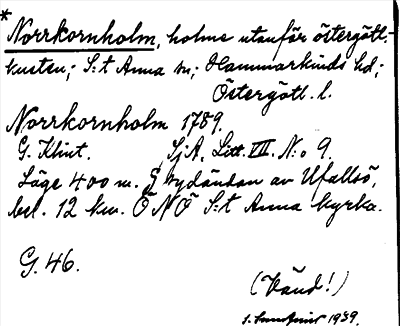 * Norrkornholm, holme utanför östergötl.-
kusten; S:t Anna sn; Hammarkinds hd;
Östergötl. l.
Norrkornholm 1789.
G. Klint. SjA, Litt. VII. N:o 9.
Läge 400 m. S sydändan av Ufallsö,
bel. 12 km. ÖNÖ S:t Anna kyrka.
G. 46.
(Vänd!)
1939.